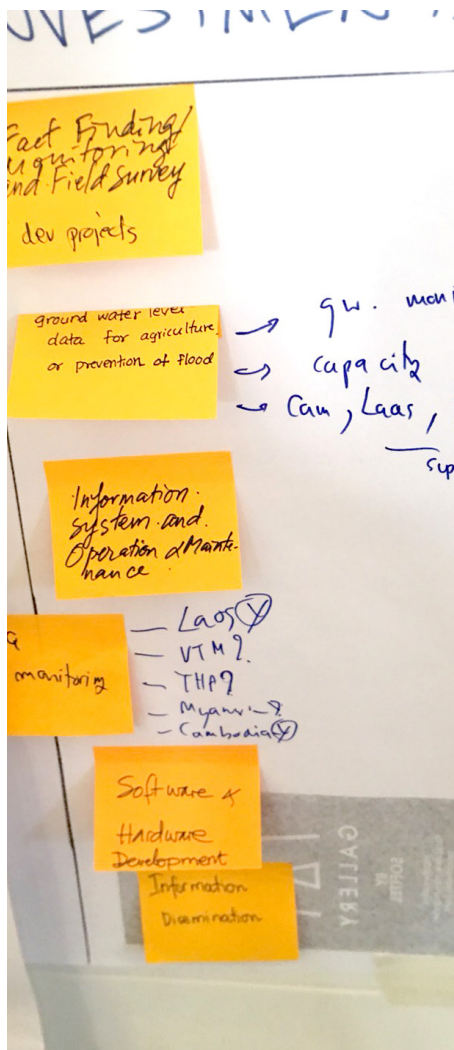 Fact Finding/
Monitoring
and Field Survey
dev projects
ground water level
data for agriculture
or prevention of flood
→ gw. moni
→ capacity
→ Cam, Laos,
sup
Information
System and
Operation & Mainte-
nance
monitoring
— Laos Ⓨ
— VTM?
— THP?
— Myanm
— Cambodia Ⓨ
Software &
Hardware
Development
Information
Dissemination
GALLERY